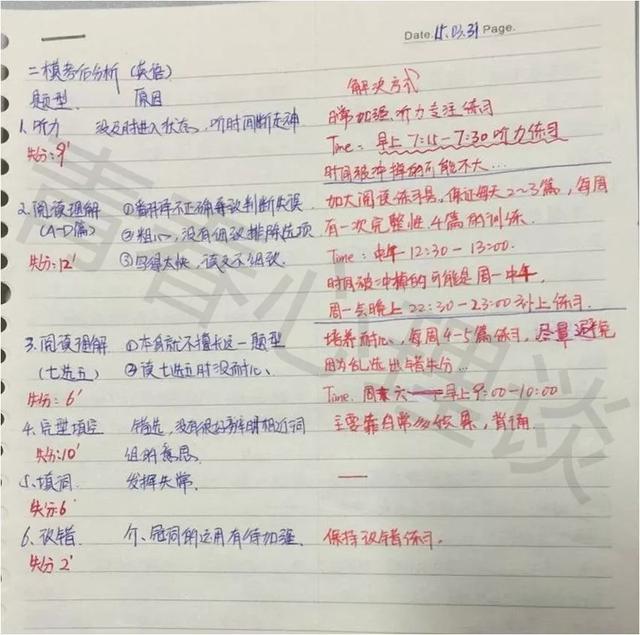 Date. 15.03.31 Page.
二模考后分析 (英语)
题型 原因 解决方式
1. 听力 没及时进入状态,听时间断走神 日常加强听力专注练习
失分: 9' Time: 早上 7:15-7:30 听力练习
时间被冲掉的可能不大…
2. 阅读理解 ① 翻译不正确导致判断失误 加大阅读练习量,保证每天2~3篇,每周
(A-D篇) ② 粗心,没有细致排除选项 有一次完整性4篇的训练.
失分: 12' ③ 写得太快,读文不细致. Time: 中午 12:30-13:00.
时间被冲掉的可能是周一中午,
周一会晚上 22:30-23:00 补上练习.
3. 阅读理解 ① 本身就不擅长这一题型 培养耐心,每周4-5篇练习,尽量避免
(七选五) ② 读七选五时没耐心、 因为乱选出错失分…
失分: 6' Time. 周六 早上 9:00-10:00
4. 完型填空 错选,没有很好辨明相近词 主要靠日常多积累,背诵.
失分: 10' 组的意思.
5. 填词. 发挥失常.
失分: 6
6. 改错 介、冠词的运用有待加强. 保持改错练习.
失分 2'
青春心理谈